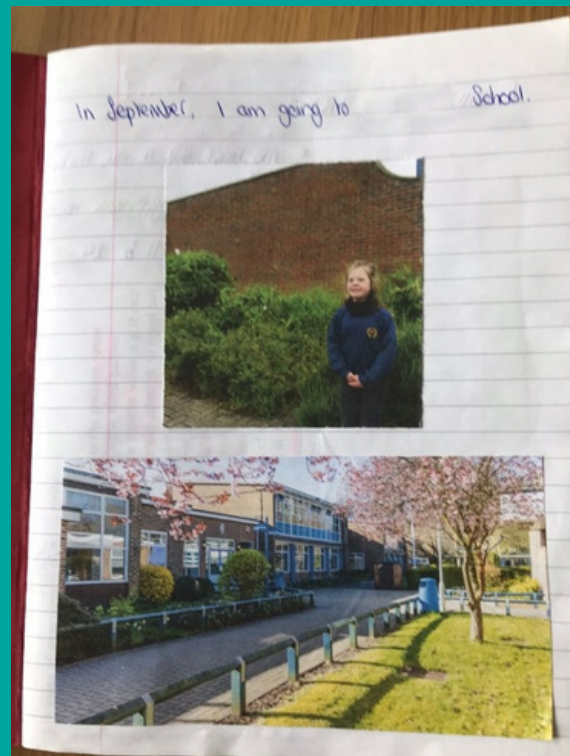 In September, I am going to School.